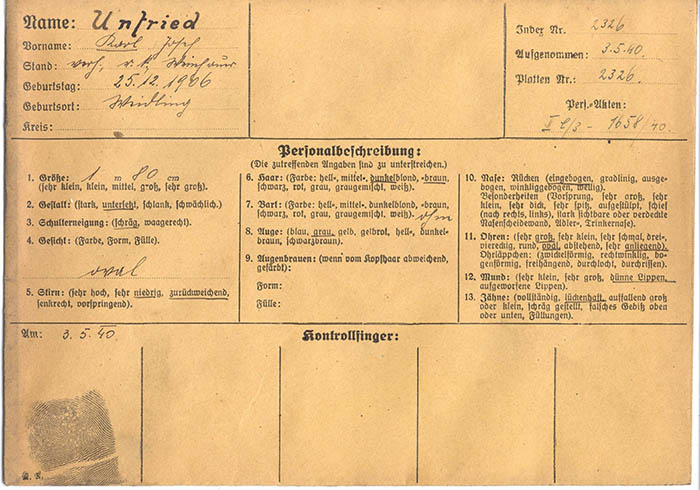 Name: Unfried
Vorname: Karl Josef
Stand: verh., r. k. Weinhauer
Geburtstag: 25.12.1906
Geburtsort: Weidling
Kreis:
Index Nr. 2326
Aufgenommen: 3.5.40.
Platten Nr.: 2326
Pers.-Akten:
1658/40.
Personalbeschreibung:
(Die zutreffenden Angaben sind zu unterstreichen.)
1. Größe: 1 m 80 cm
(sehr klein, klein, mittel, groß, sehr groß).
2. Gestalt: (stark, untersetzt, schlank, schwächlich.)
3. Schulterneigung: (schräg, waagerecht.)
4. Gesicht: (Farbe, Form, Fülle).
oval
5. Stirn: (sehr hoch, sehr niedrig, zurückweichend,
senkrecht, vorspringend).
6. Haar: (Farbe: hell-, mittel-, dunkelblond, -braun,
schwarz, rot, grau, graugemischt, weiß).
7. Bart: (Farbe: hell-, mittel-, dunkelblond, -braun,
schwarz, rot, grau, graugemischt, weiß).
8. Auge: (blau, grau, gelb, gelbrot, hell-, dunkel-
braun, schwarzbraun).
9. Augenbrauen: (wenn vom Kopfhaar abweichend,
gefärbt):
Form:
Fülle:
10. Nase: Rücken (eingebogen, gradlinig, ausge-
bogen, winkliggebogen, wellig).
Besonderheiten (Vorsprung, sehr groß, sehr
klein, sehr dick, sehr spitz, aufgestülpt, schief
(nach rechts, links), stark sichtbare oder verdeckte
Nasenscheidewand, Adler-, Trinkernase).
11. Ohren: (sehr groß, sehr klein, sehr schmal, drei-,
viereckig, rund, oval, abstehend, sehr anliegend).
Ohrläppchen: (zwickelförmig, rechtwinklig, bo-
genförmig, freihängend, durchlocht, durchrissen).
12. Mund: (sehr klein, sehr groß, dünne Lippen,
aufgeworfene Lippen).
13. Zähne: (vollständig, lückenhaft, auffallend groß
oder klein, schräg gestellt, falsches Gebiß oben
oder unten, Füllungen).
Am: 3.5.40.
Kontrollfinger: